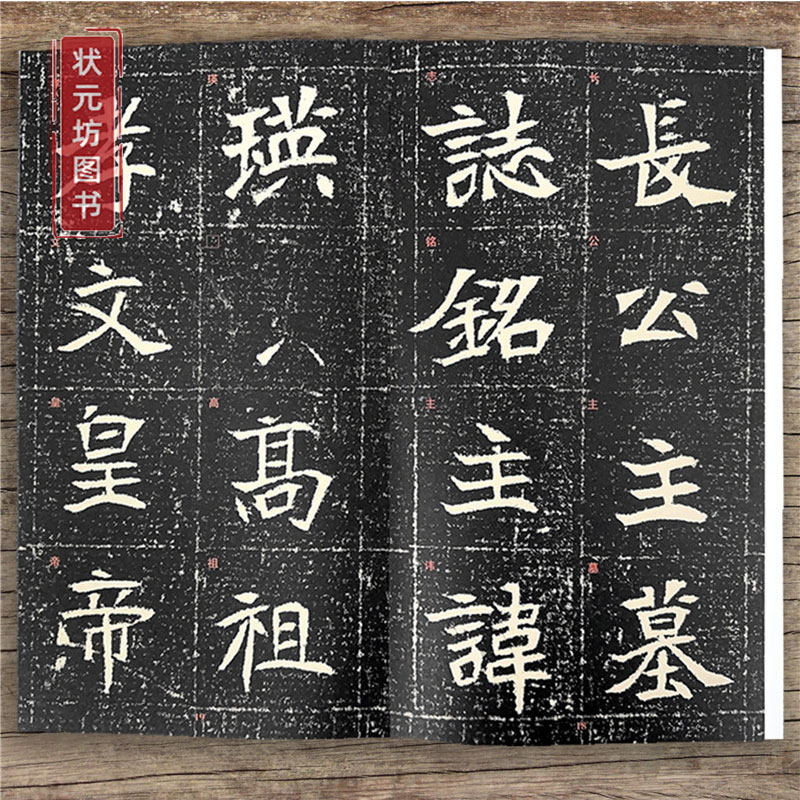 長公主墓
长公主墓
誌銘主諱
志铭主讳
18
瑛高祖
瑛□高祖
孝文皇帝
文皇帝
19
状元坊图书